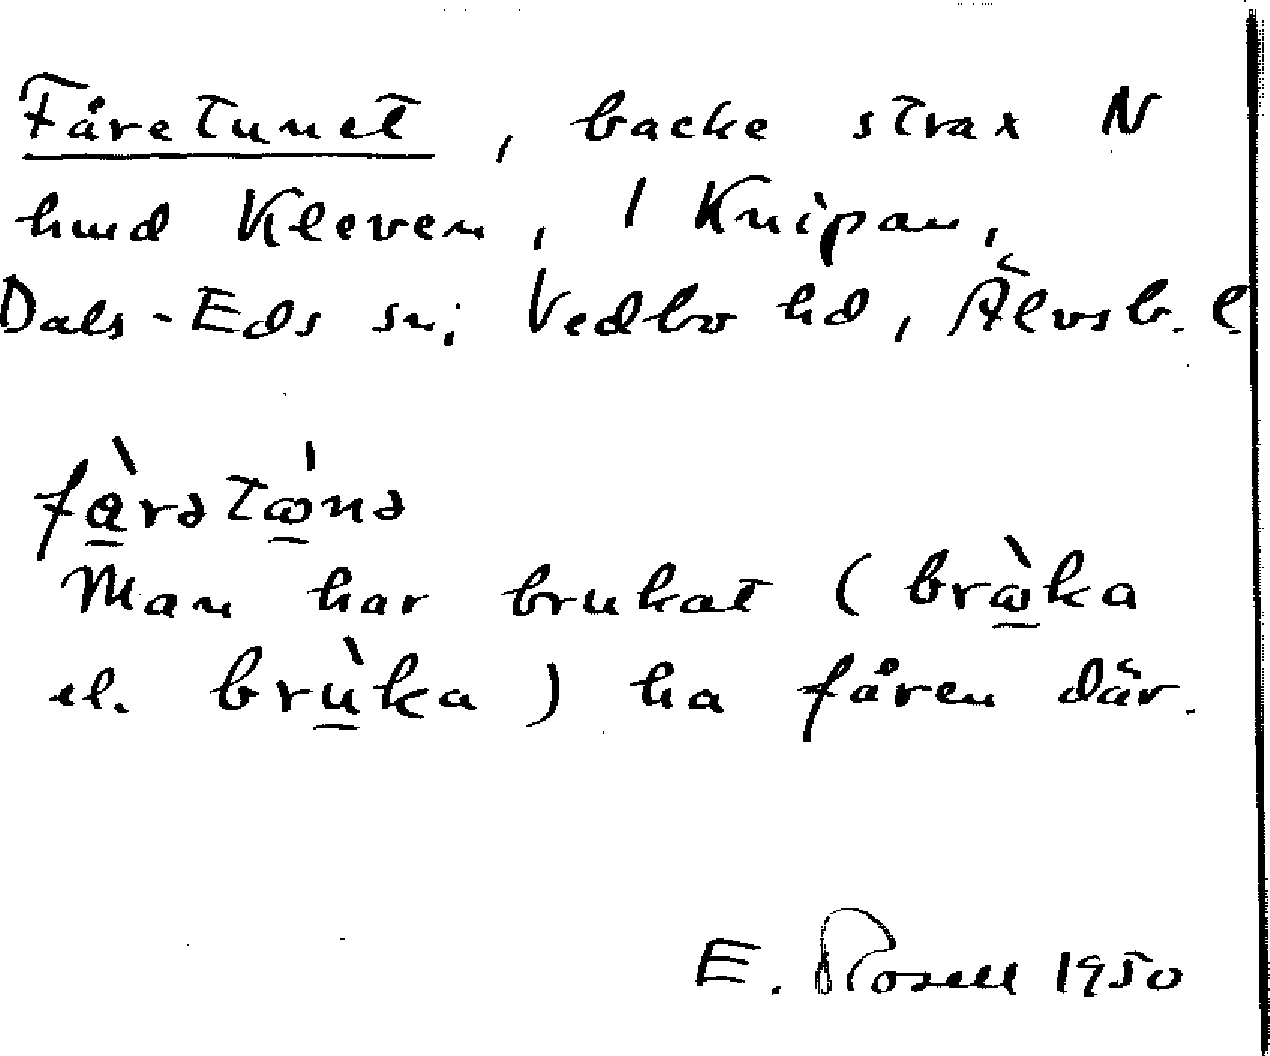 Fåretunet, backe strax N
hmd Kleven, 1 Knipan,
Dals-Eds sn; Vedbo hd, Älvsb. l
fàrətωnə
Man har brukat (brὼka
el. brùka) ha fåren där.
E. Rosell 1950